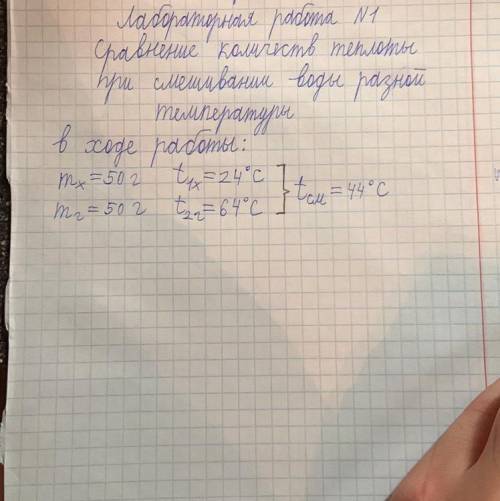 Лабораторная работа N1
Сравнение количеств теплоты
при смешивании воды разной
температуры
в ходе работы:
mх=50г t1х=24°C
mг=50г t2г=64°C } tсм=44°C